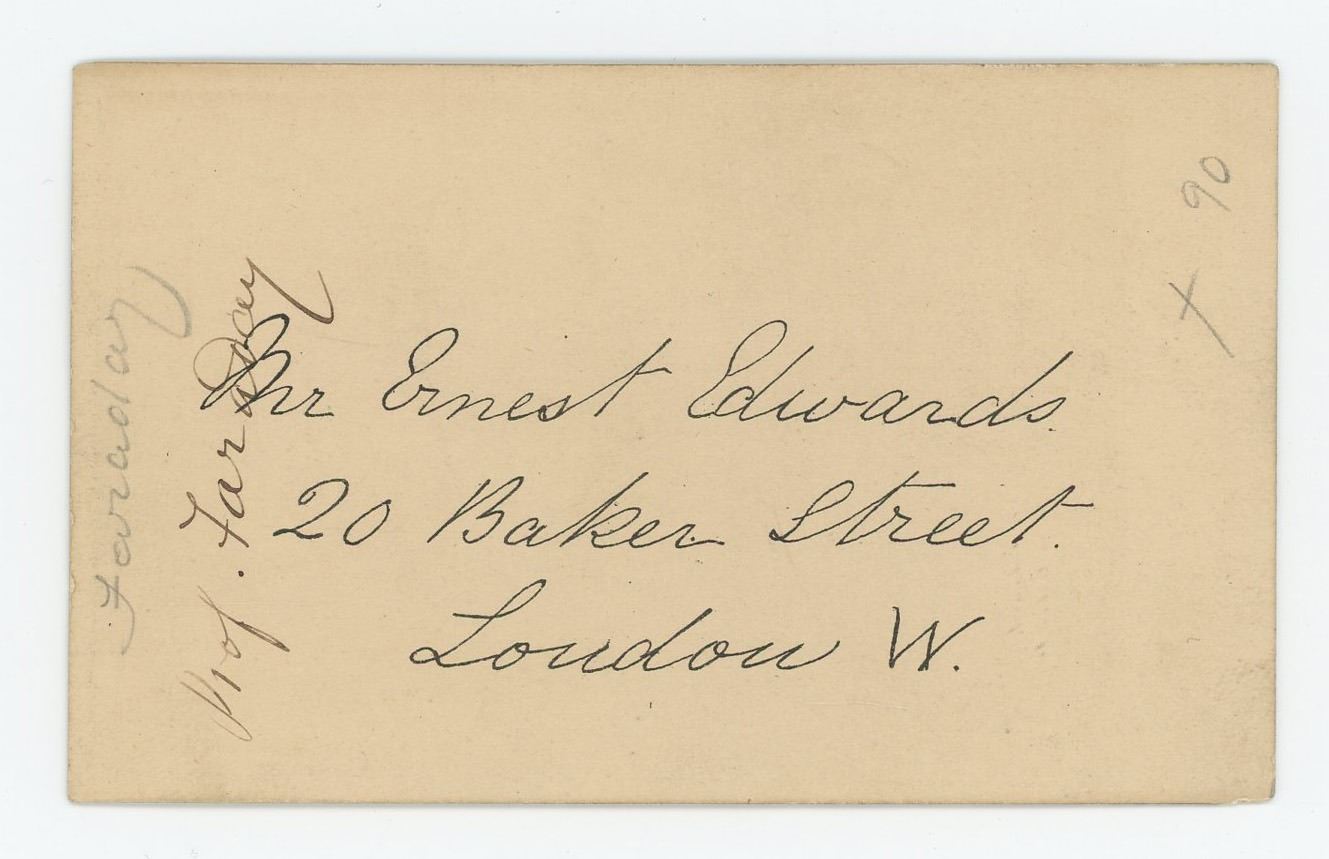 Mr Ernest Edwards.
20 Baker Street.
London W.
Prof. Faraday
Faraday
90